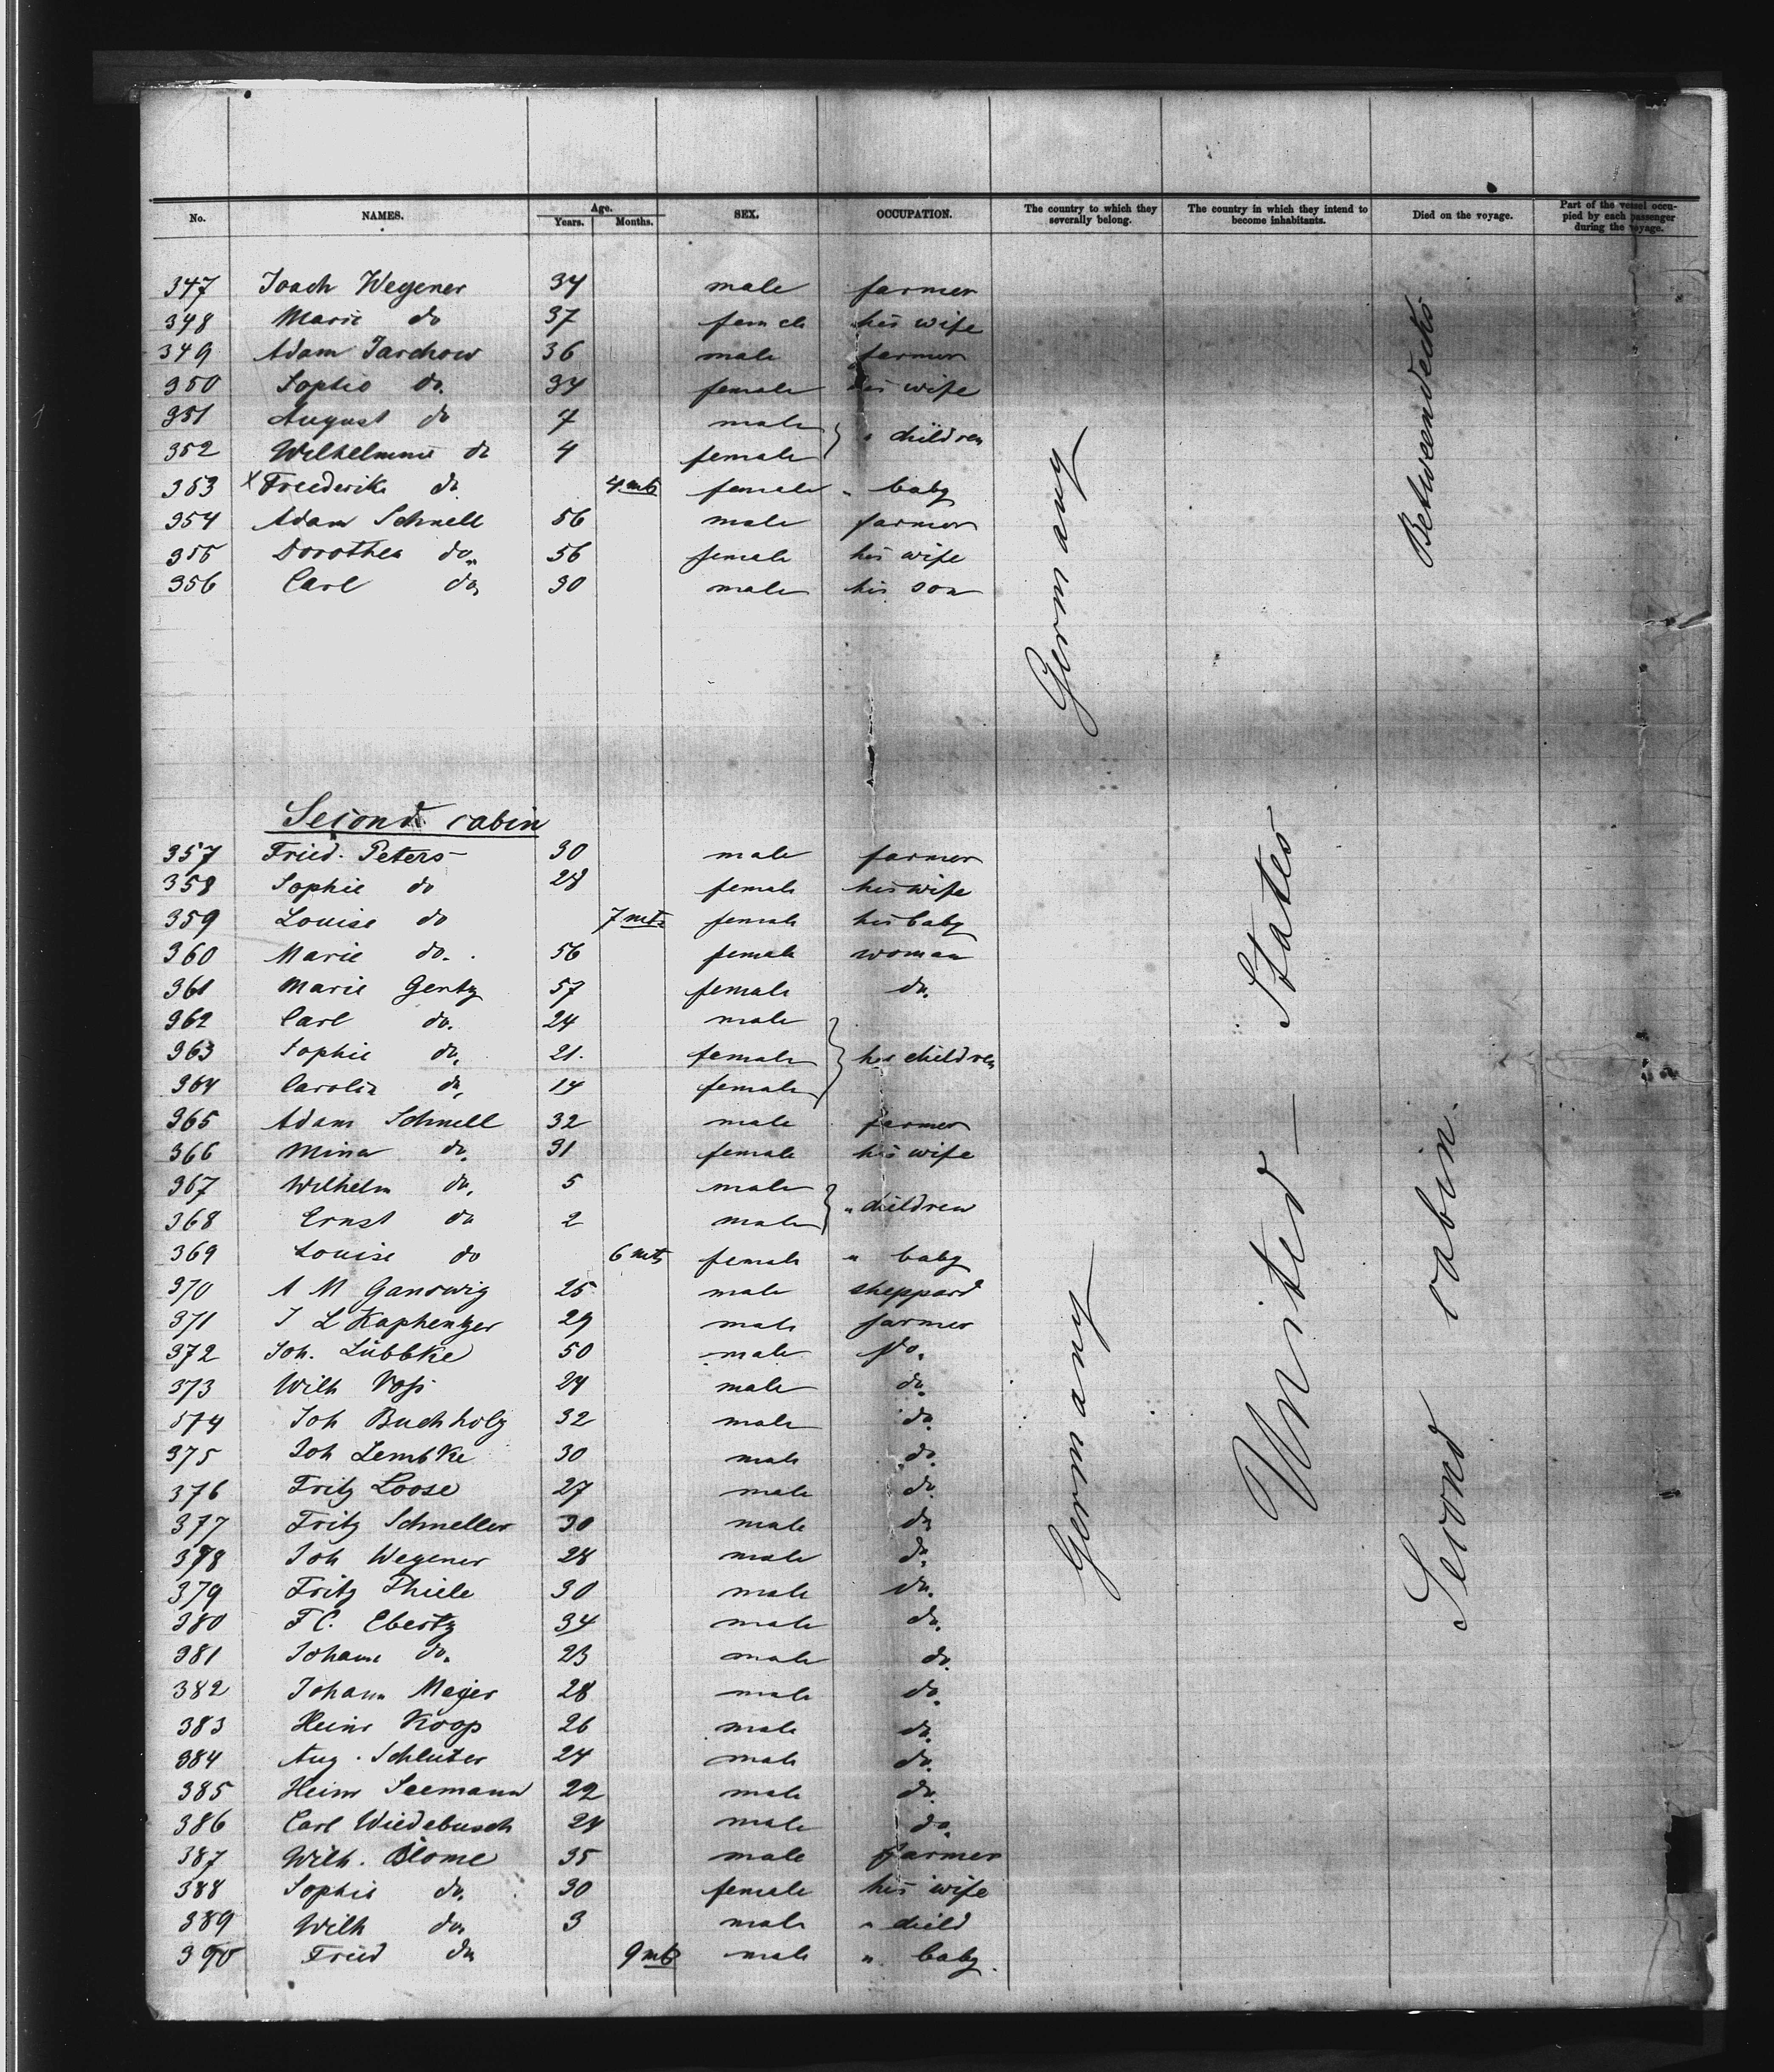 No. NAMES. Age. Years. Months. SEX. OCCUPATION. The country to which they severally belong. The country in which they intend to become inhabitants. Died on the voyage. Part of the vessel occupied by each passenger during the voyage.
347 Joach Wegener 34 male farmer
348 Marie do 37 female his wife
349 Adam Jarchow 36 male farmer
350 Sophie do. 34 female his wife
351 August do 7 male
" children
352 Wilhelmine do 4 female
353 x Friederike do 4 mts female " baby
354 Adam Schnell 56 male farmer
355 Dorothea do 56 female his wife
356 Carl do 30 male his son
Germany
Betweendecks
Second cabin
357 Fried. Peters 30 male farmer
358 Sophie do 28 female his wife
359 Louise do 7 mts female his baby
360 Marie do. 56 female woman
361 Marie Gentz 57 female do.
362 Carl do. 24 male
363 Sophie do. 21. female her children
364 Carolin do. 14 female
365 Adam Schnell 32 male farmer
366 Mina do. 31 female his wife
367 Wilhelm do. 5 male
" children
368 Ernst do 2 male
369 Louise do 6 mts female " baby
370 A M Ganswig 25 male sheppard
371 J L Kaphentzer 29 male farmer
372 Joh. Lübbke 50 male do.
373 Wilh Voss 24 male do.
374 Joh Buchholz 32 male do.
375 Joh Lembke 30 male do.
376 Fritz Loose 27 male do.
377 Fritz Schneller 30 male do
378 Joh Wegener 28 male do.
379 Fritz Thiele 30 male do.
380 F C. Ebertz 34 male do.
381 Johann do. 23 male do.
382 Johann Meyer 28 male do.
383 Heinr Koop 26 male do.
384 Aug. Schluter 24 male do.
385 Heinr Seemann 22 male do.
386 Carl Wiedebusch 24 male do.
387 Wilh. Blome 35 male farmer
388 Sophie do. 30 female his wife
389 Wilh do. 3 male " child
390 Fried do 9 mts male " baby.
Germany
United States
Second cabin.